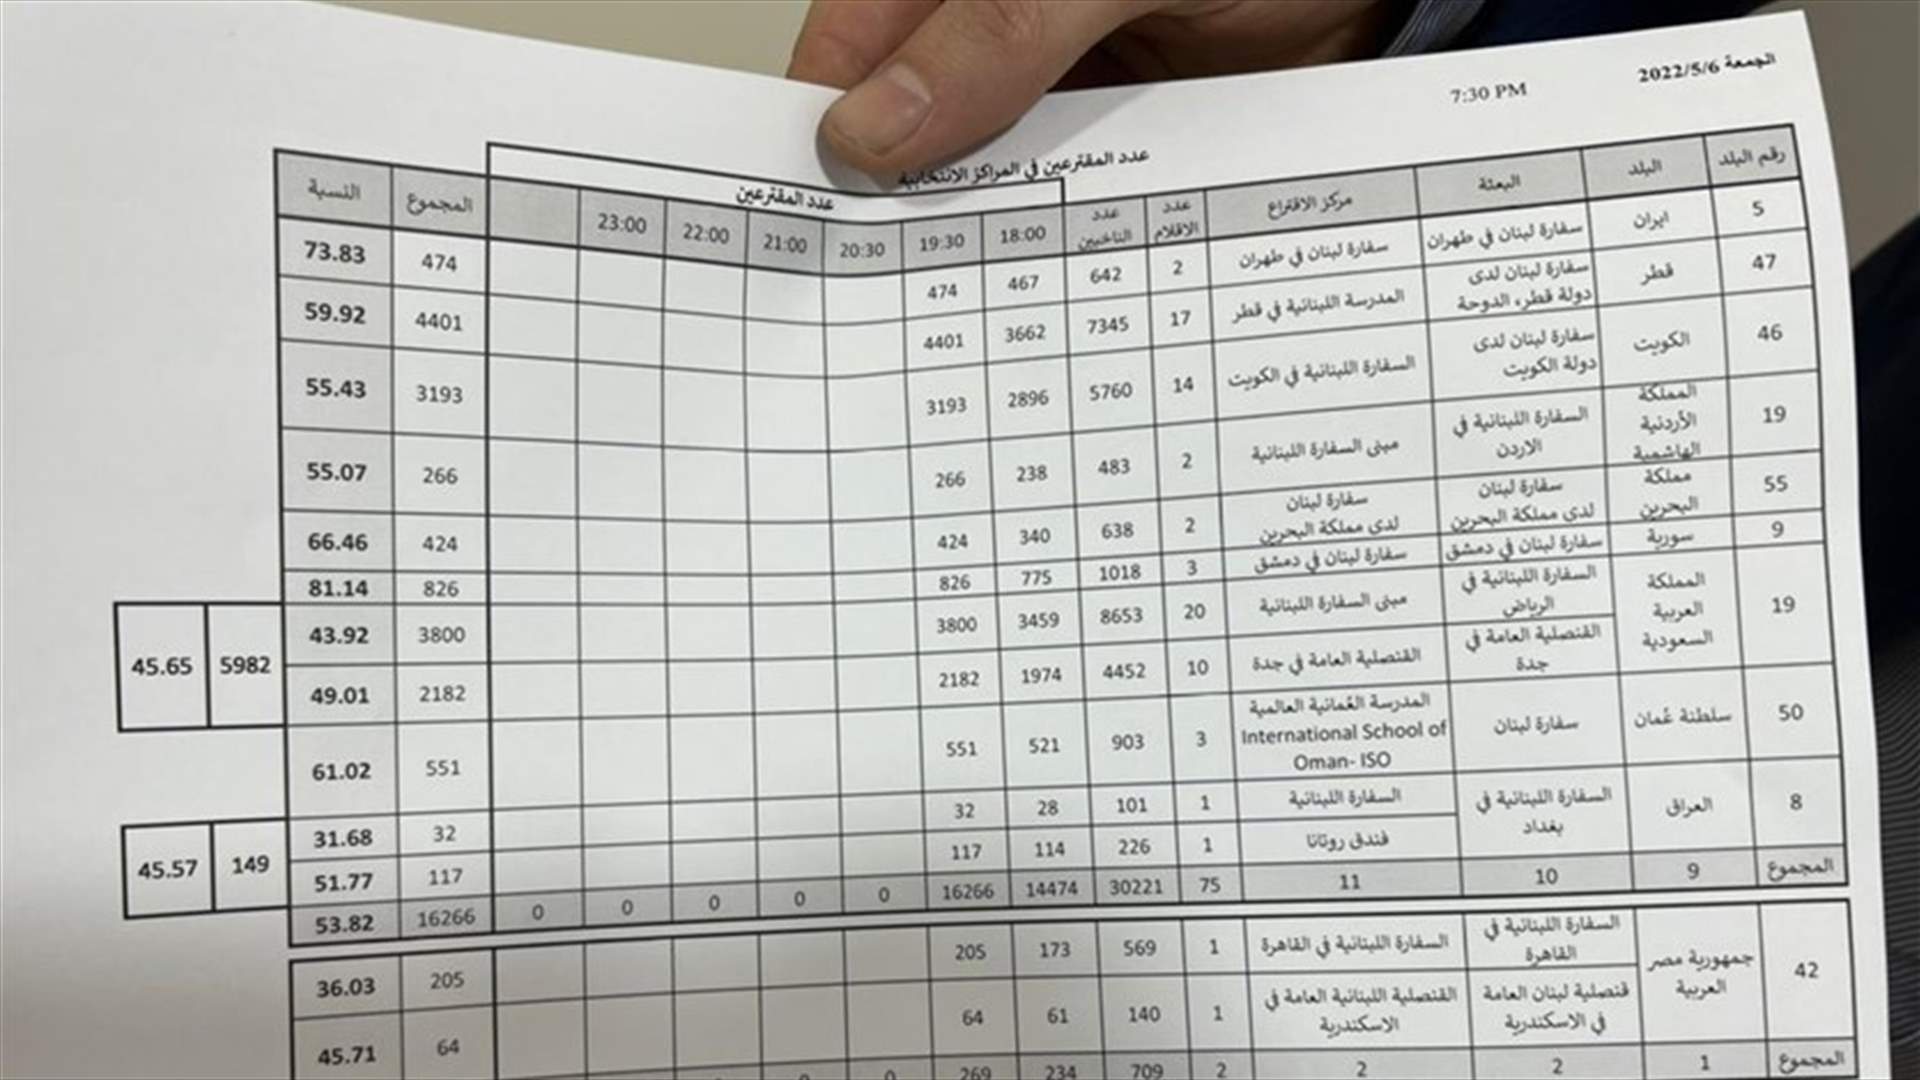 الجمعة 2022/5/6
7:30 PM
عدد المقترعين في المراكز الانتخابية
رقم البلد البلد البعثة مركز الاقتراع عدد الاقلام عدد الناخبين عدد المقترعين 18:00 19:30 20:30 21:00 22:00 23:00 المجموع النسبة
5 ايران سفارة لبنان في طهران سفارة لبنان في طهران 2 642 467 474 474 73.83
47 قطر سفارة لبنان لدى دولة قطر، الدوحة المدرسة اللبنانية في قطر 17 7345 3662 4401 4401 59.92
46 الكويت سفارة لبنان لدى دولة الكويت السفارة اللبنانية في الكويت 14 5760 2896 3193 3193 55.43
19 المملكة الأردنية الهاشمية السفارة اللبنانية في الاردن مبنى السفارة اللبنانية 2 483 238 266 266 55.07
55 مملكة البحرين سفارة لبنان لدى مملكة البحرين سفارة لبنان لدى مملكة البحرين 2 638 340 424 424 66.46
9 سورية سفارة لبنان في دمشق سفارة لبنان في دمشق 3 1018 775 826 826 81.14
19 المملكة العربية السعودية السفارة اللبنانية في الرياض مبنى السفارة اللبنانية 20 8653 3459 3800 3800 43.92
القنصلية العامة في جدة القنصلية العامة في جدة 10 4452 1974 2182 2182 49.01
5982 45.65
50 سلطنة عُمان سفارة لبنان المدرسة العُمانية العالمية International School of Oman- ISO 3 903 521 551 551 61.02
8 العراق السفارة اللبنانية في بغداد السفارة اللبنانية 1 101 28 32 32 31.68
فندق روتانا 1 226 114 117 117 51.77
149 45.57
المجموع 9 10 11 75 30221 14474 16266 0 0 0 0 0 16266 53.82
42 جمهورية مصر العربية السفارة اللبنانية في القاهرة السفارة اللبنانية في القاهرة 1 569 173 205 205 36.03
قنصلية لبنان العامة في الاسكندرية القنصلية اللبنانية العامة في الاسكندرية 1 140 61 64 64 45.71
المجموع 1 2 2 2 709 234 269 0 0